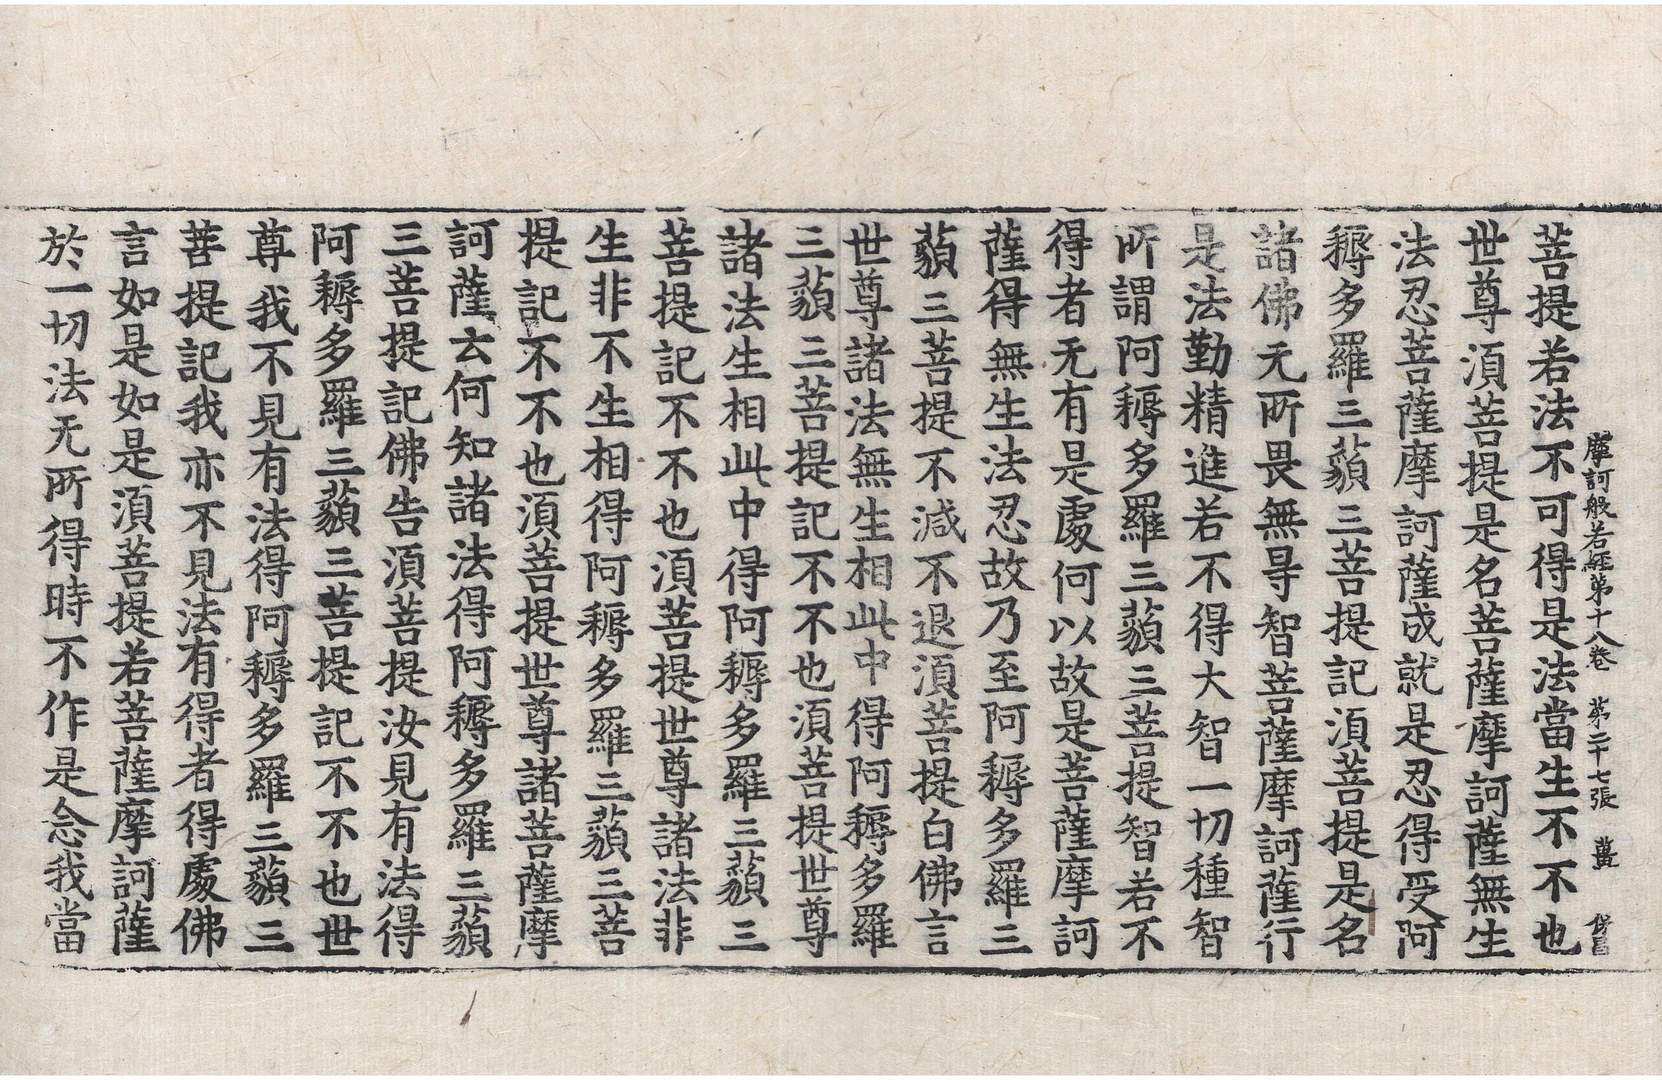 摩訶般若経第十八卷　第二十七張　薑
菩提若法不可得是法當生不不也
世尊湏菩提是名菩薩摩訶薩無生
法忍菩薩摩訶薩成就是忍得受阿
耨多羅三藐三菩提記湏菩提是名
諸佛无所畏無㝵智菩薩摩訶薩行
是法勤精進若不得大智一切種智
所謂阿耨多羅三藐三菩提智若不
得者无有是處何以故是菩薩摩訶
薩得無生法忍故乃至阿耨多羅三
藐三菩提不減不退湏菩提白佛言
世尊諸法無生相此中得阿耨多羅
三藐三菩提記不不也湏菩提世尊
諸法生相此中得阿耨多羅三藐三
菩提記不不也湏菩提世尊諸法非
生非不生相得阿耨多羅三藐三菩
提記不不也湏菩提世尊諸菩薩摩
訶薩云何知諸法得阿耨多羅三藐
三菩提記佛告湏菩提汝見有法得
阿耨多羅三藐三菩提記不不也世
尊我不見有法得阿耨多羅三藐三
菩提記我亦不見法有得者得處佛
言如是如是湏菩提若菩薩摩訶薩
於一切法无所得時不作是念我當